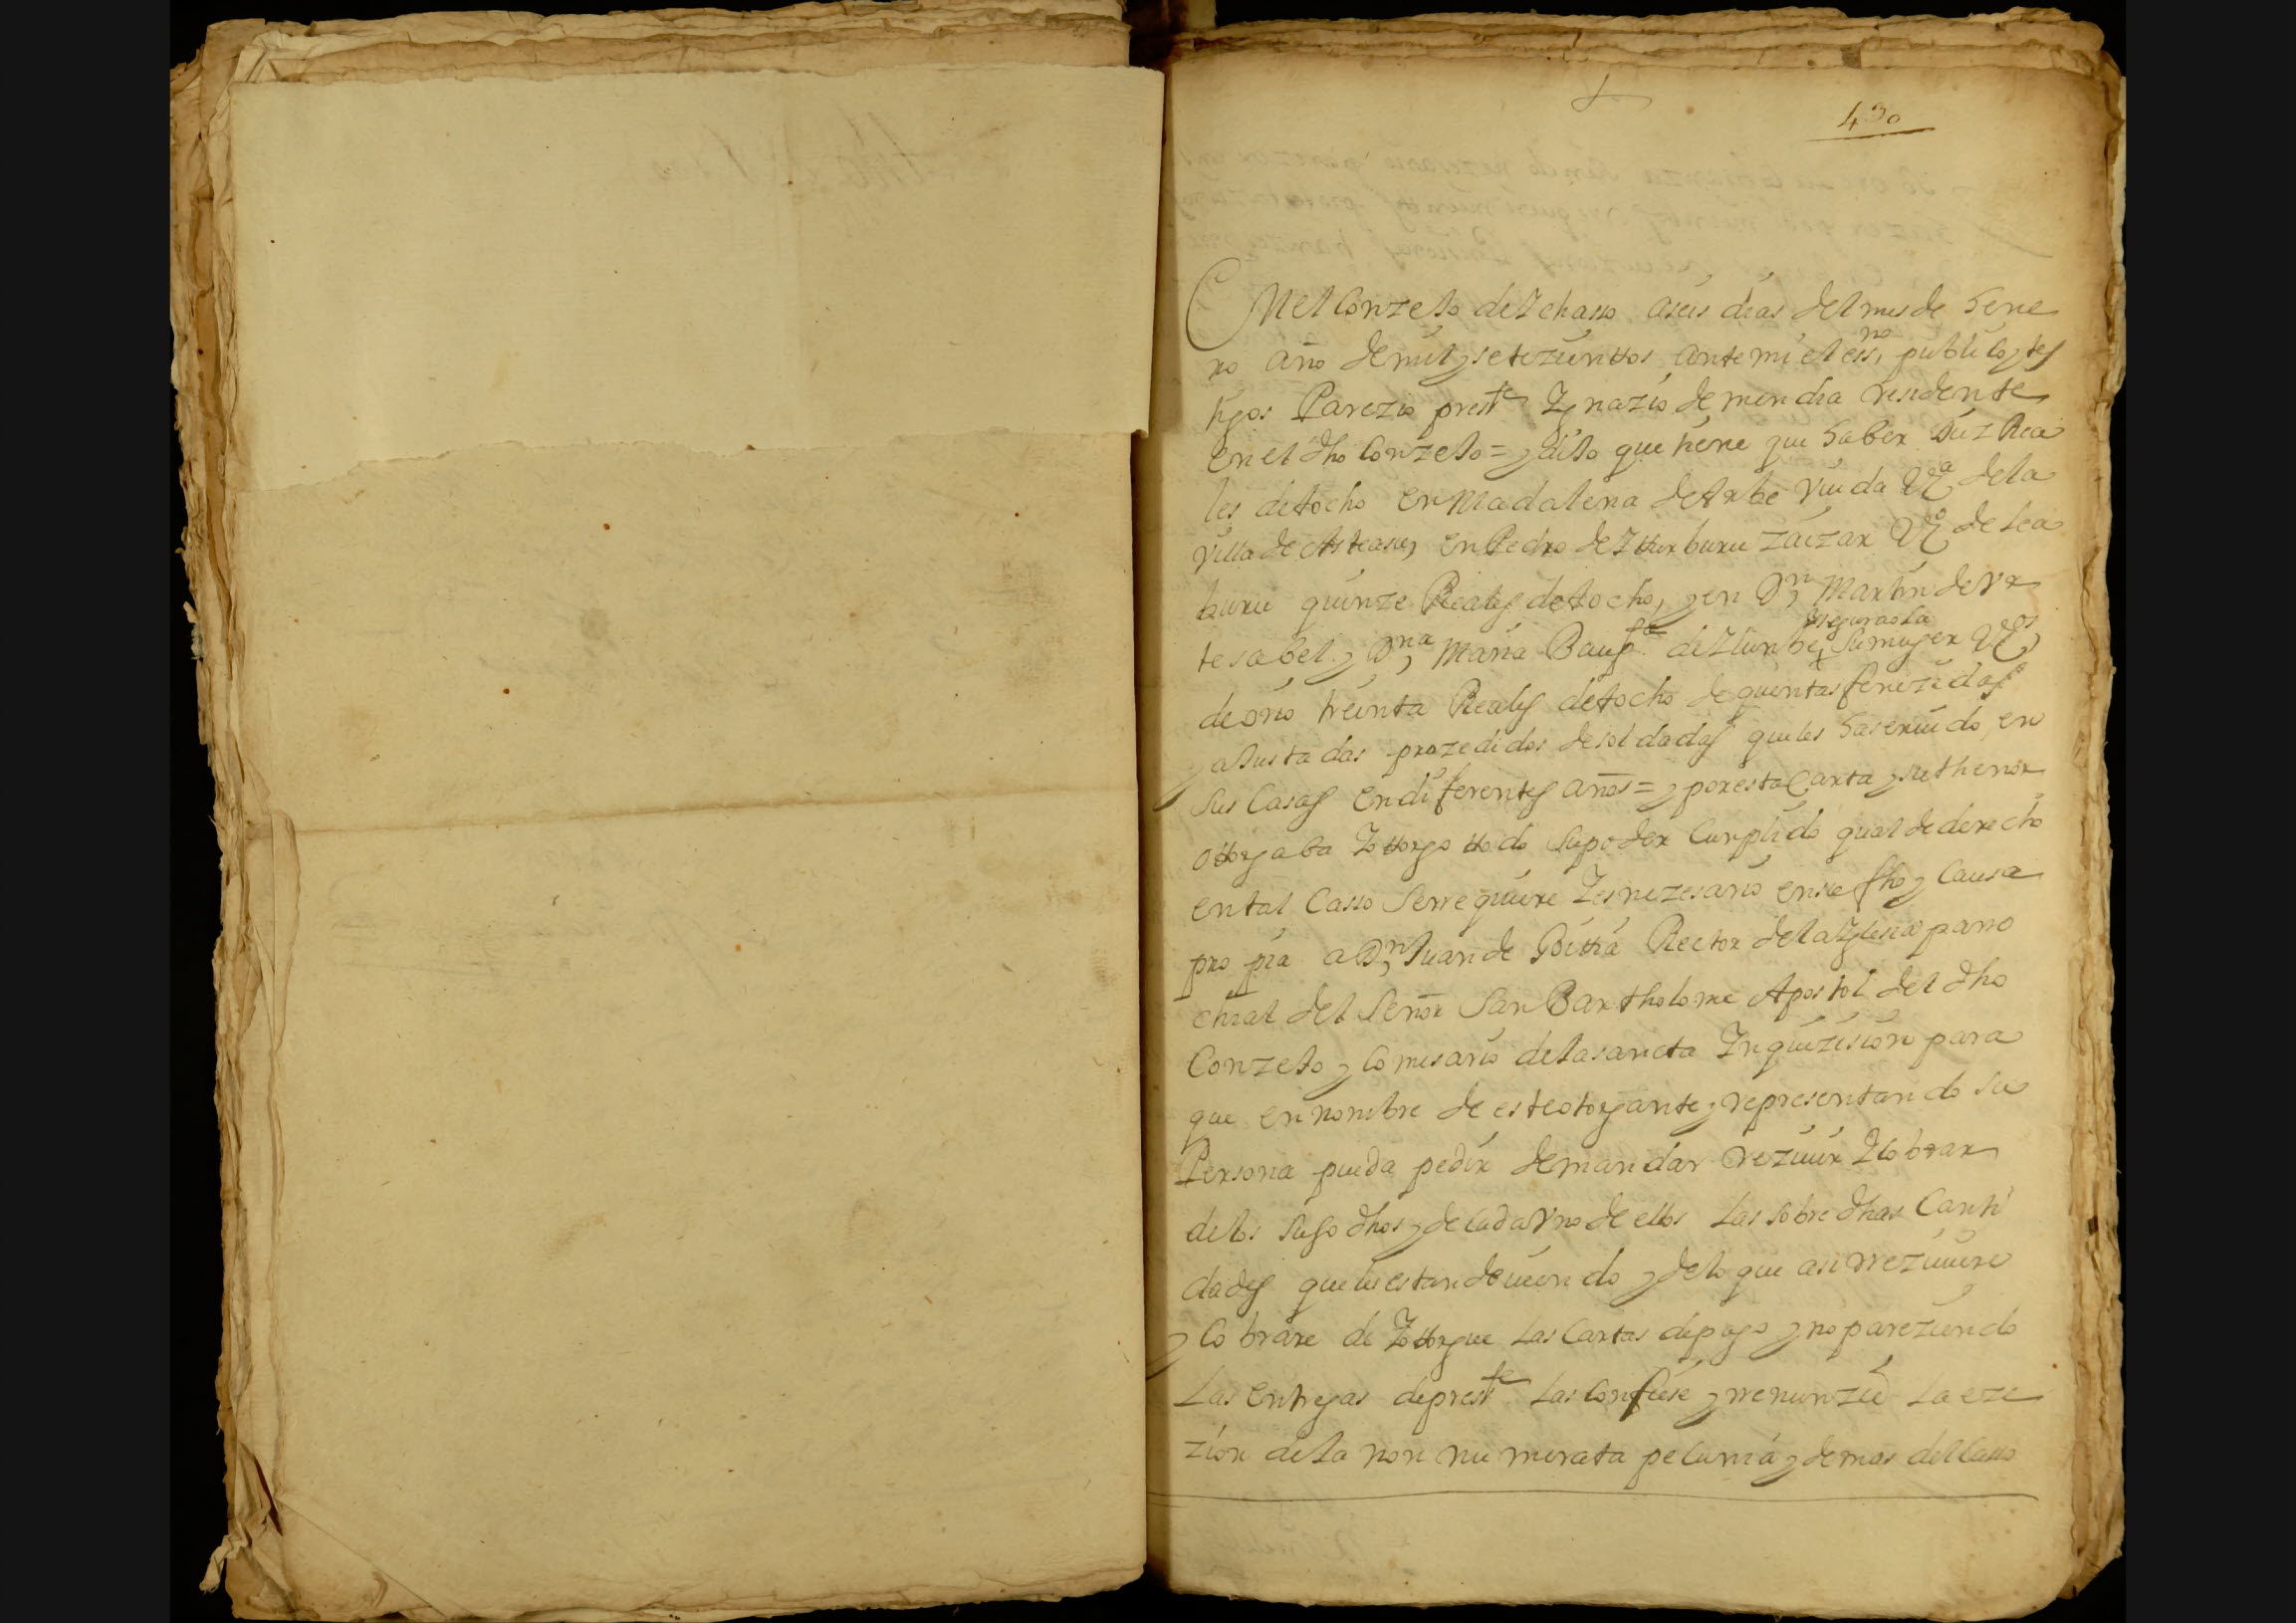 430
En el Conzejo de Ichasso a seis dias del mes de hene
ro año de mil y setezienttos ante mi el essno publico y tes
tigos Parezio preste Ygnazio de mendia residente
en el dho Conzejo = y dijo que tiene que haber diez Rea
les de a ocho en Madalena de Arbe viuda Vza de la
villa de Asteasu, en Pedro de Yturburu zaizar Vzo de Lea
buru quinze Reales de a ocho, y en Dn Martin de Vr
segurola
tesabel y Dna Maria Baupta de Ylunbe + su muger Vzos
de orio treinta Reales de a ocho de quentas fenezidas
y ajustadas prozedidos de soldadas que les ha seruido, en
sus Casas en diferentes años = y por esta Carta y su thenor
ottorgaba Yottorgo ttodo su poder Cunplido qual de derecho
en tal Casso se rrequiere Yes nezesario en su fho y Causa
propia a Dn Juan de Bittia Rector de la Yglesia parro
chial del Señor San Bartholome Apostol del dho
Conzejo y Comisario de la sancta Ynquizision para
que en nombre de este otorgante y representando su
Persona pueda pedir demandar reziuir Ycobrar
de los suso dhos y de cada Vno de ellos las sobre dhas Canti
dades que le estan deuiendo y de lo que asi rreziuiere
y Cobrare de Yottorgue las Cartas de pago y no pareziendo
las entregas de preste las confiese y rrenunzie la eze
zion de la non numerata pecunia y demas del Casso